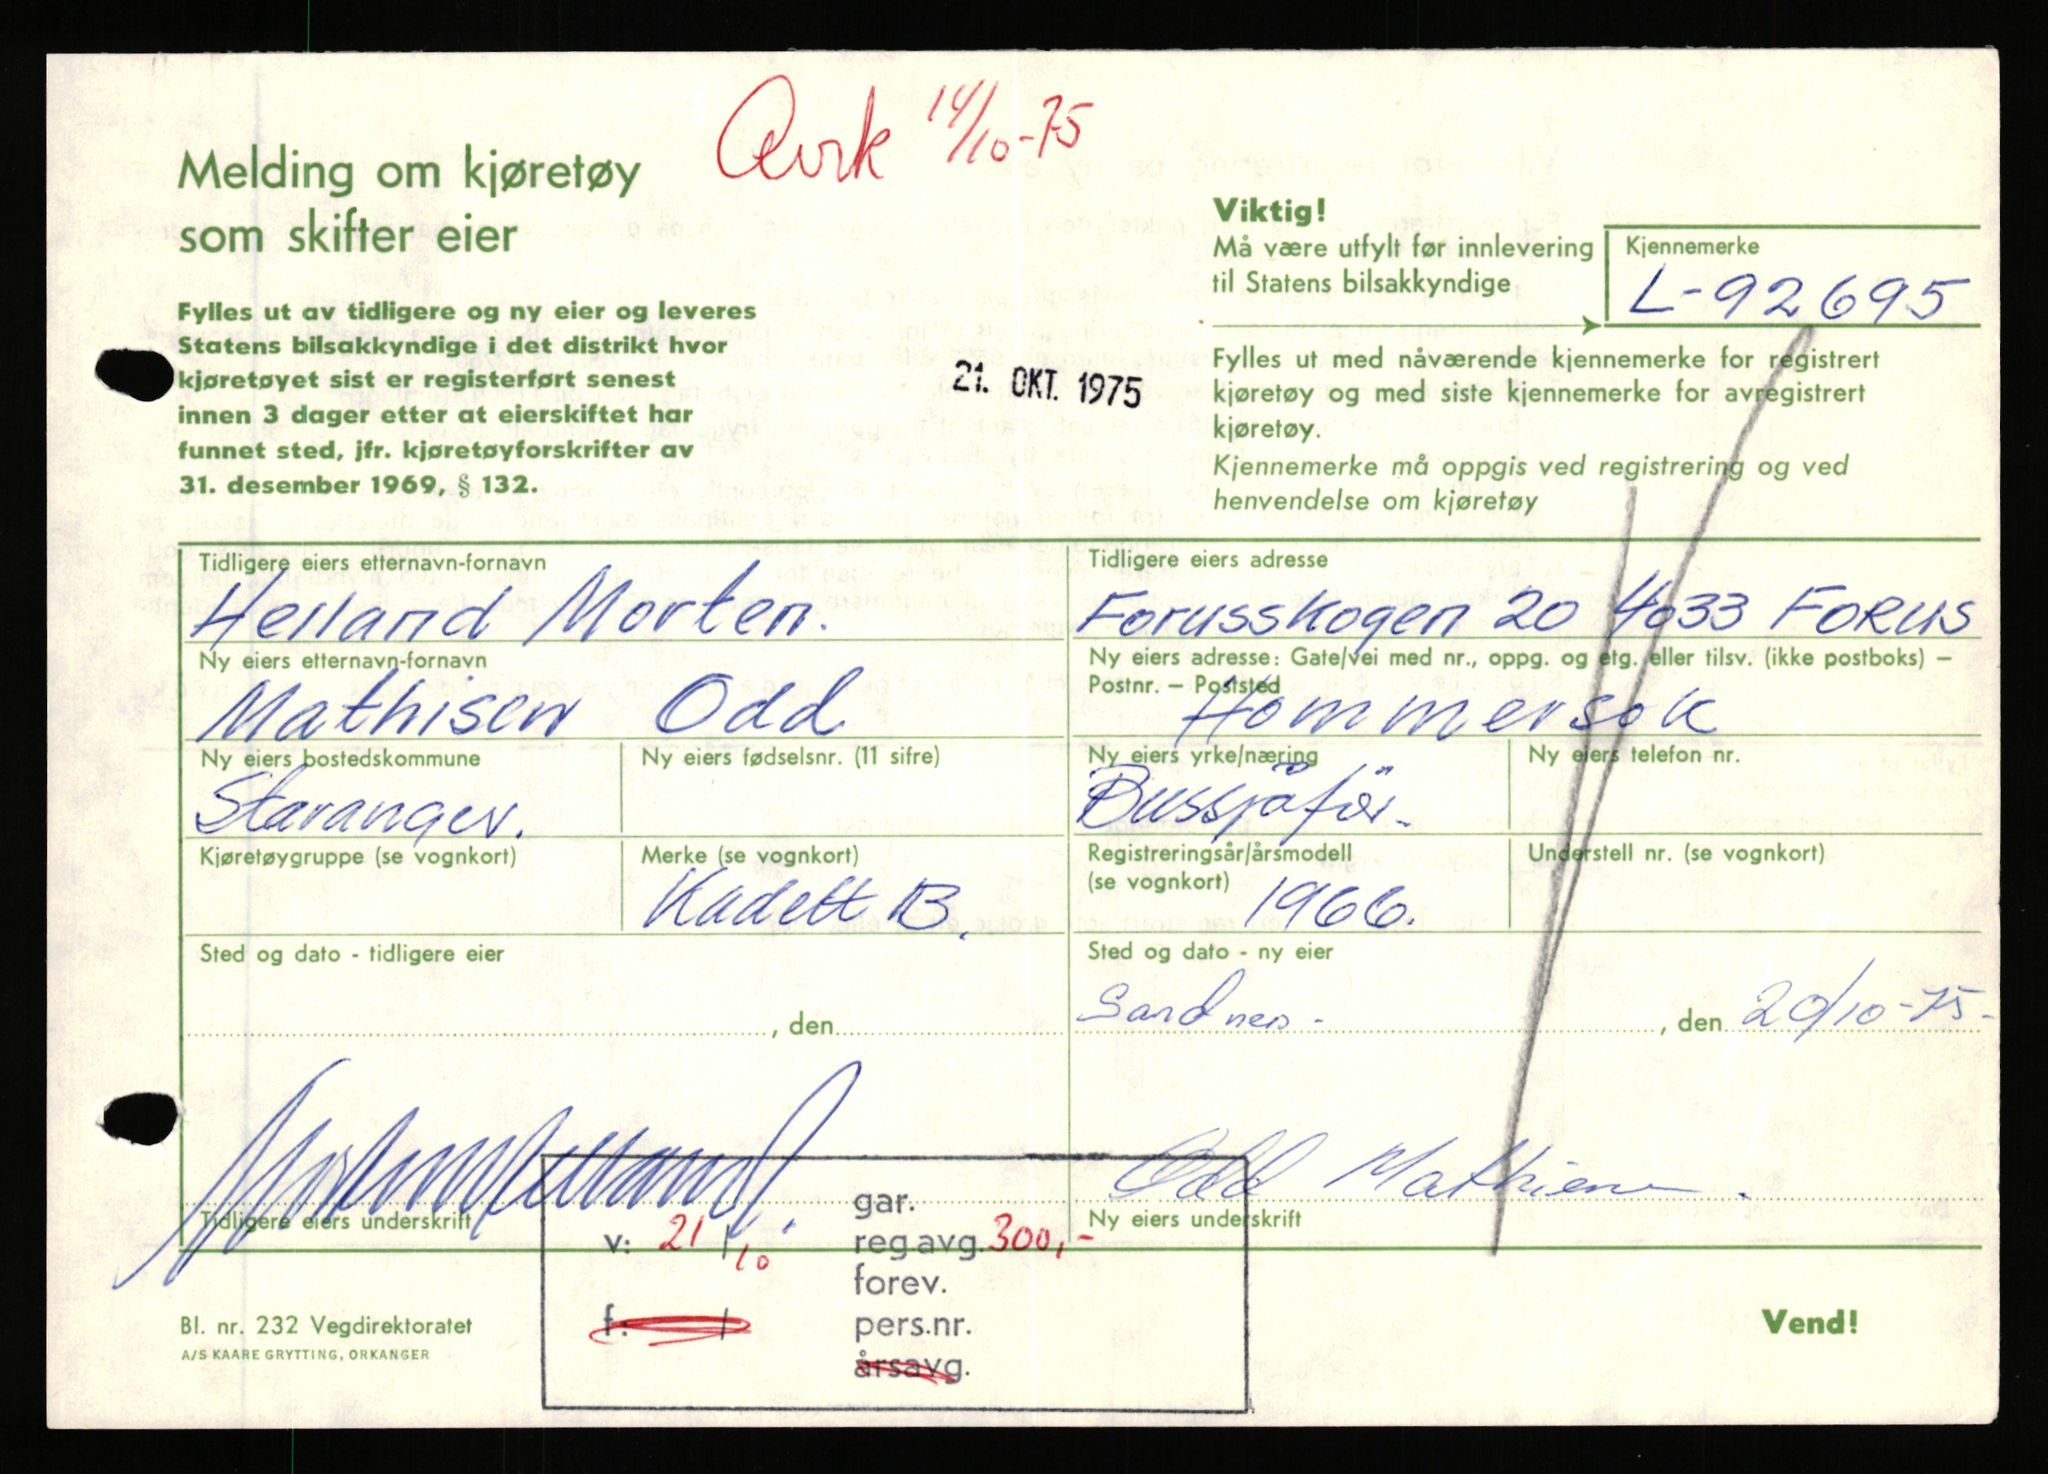 Avrk 14/10-75
Melding om kjøretøy
som skifter eier
Fylles ut av tidligere og ny eier og leveres
Statens bilsakkyndige i det distrikt hvor
kjøretøyet sist er registerført senest
innen 3 dager etter at eierskiftet har
funnet sted, jfr. kjøretøyforskrifter av
31. desember 1969, § 132.
21. OKT. 1975
Viktig!
Må være utfylt før innlevering
til Statens bilsakkyndige
Kjennemerke
L-92695
Fylles ut med nåværende kjennemerke for registrert
kjøretøy og med siste kjennemerke for avregistrert
kjøretøy.
Kjennemerke må oppgis ved registrering og ved
henvendelse om kjøretøy
Tidligere eiers etternavn-fornavn
Helland Morten.
Tidligere eiers adresse
Forusskogen 20 4033 FORUS
Ny eiers etternavn-fornavn
Mathisen Odd
Ny eiers adresse: Gate/vei med nr., oppg. og etg. eller tilsv. (ikke postboks) –
Postnr. – Poststed
Hommersok
Ny eiers bostedskommune
Stavanger.
Ny eiers fødselsnr. (11 sifre)
Ny eiers yrke/næring
Bussjåfør.
Ny eiers telefon nr.
Kjøretøygruppe (se vognkort)
Merke (se vognkort)
Kadett B.
Registreringsår/årsmodell
(se vognkort)
1966.
Understell nr. (se vognkort)
Sted og dato - tidligere eier
, den
Sted og dato - ny eier
Sandnes - , den 20/10-75-
Morten Helland
Tidligere eiers underskrift
Odd Mathisen.
Ny eiers underskrift
gar.
v: 21/10 reg.avg. 300,-
forev.
f: / pers.nr.
årsavg.
Bl. nr. 232 Vegdirektoratet
A/S KAARE GRYTTING, ORKANGER
Vend!